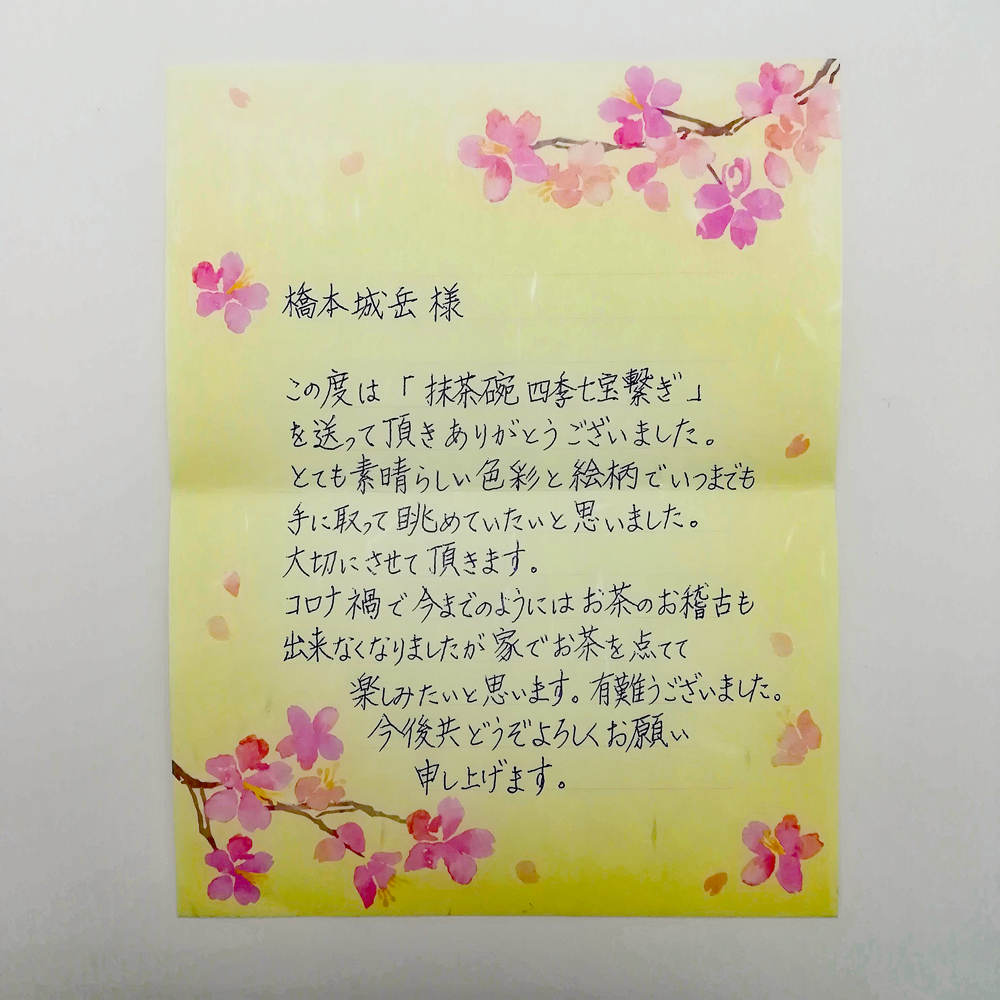 橋本城岳様
この度は「抹茶碗 四季七宝繋ぎ」
を送って頂きありがとうございました。
とても素晴らしい色彩と絵柄でいつまでも
手に取って眺めていたいと思いました。
大切にさせて頂きます。
コロナ禍で今までのようにはお茶のお稽古も
出来なくなりましたが家でお茶を点てて
楽しみたいと思います。有難うございました。
今後共どうぞよろしくお願い
申し上げます。